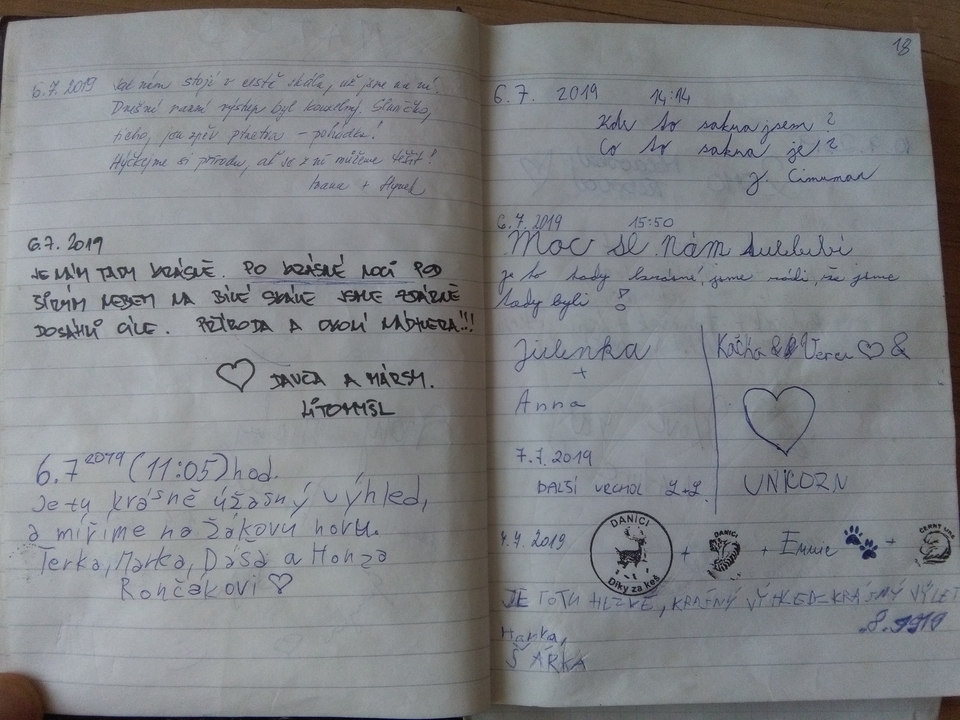 6.7.2019 Jak nám stojí v cestě skála, už jsme na ní.
Dnešní ranní výstup byl kouzelný. Sluníčko,
ticho, jen zpěv ptactva – pohádka!
Hýčkejme si přírodu, ať se z ní můžeme těšit!
Ivana + Hynek
6.7.2019
JE NÁM TADY KRÁSNĚ. PO KRÁSNÉ NOCI POD
ŠIRÝM NEBEM NA BÍLÉ SKÁLE JSME ZDÁRNĚ
DOSÁHLI CÍLE. PŘÍRODA A OKOLÍ NÁDHERA!!!
♡ DAVČA A MÁRSY.
LITOMYŠL
6.7 2019 (11:05) hod.
Je tu krásně úžasný výhled,
a míříme na Žákovu horu.
Terka, Marka, Dáša a Honza
Rončákovi ♡
18
6.7. 2019 14:14
Kdo to sakra jsem?
Co to sakra je?
J. Cimrman
6.7.2019 15:50
Moc se nám líbí
je to tady krásné, jsme rádi, že jsme
tady byli !
Julenka
+
Anna
Kačka & Verču ♡ &
♡
UNICORN
7.7.2019
DALŠÍ VRCHOL L+L.
7.7.2019 DANÍCI Díky za keš + DANÍCI + Emme + ČERNÝ
JE TOTU HEZKÉ, KRÁSNÝ VÝHLED=KRÁSNÝ VÝLET
Hanka,
ŠÁRKA